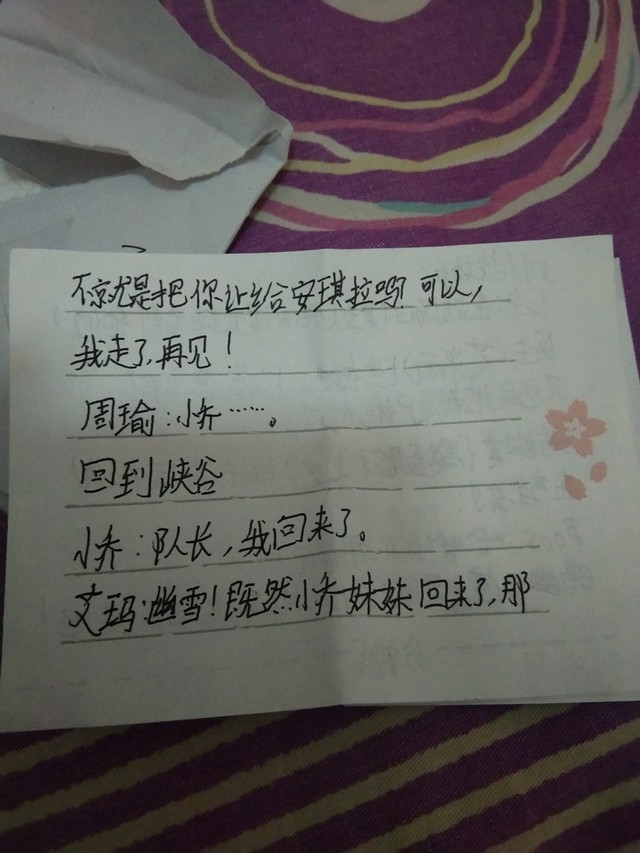 不就是把你让给安琪拉吗？可以，
我走了，再见！
周瑜：小乔……。
回到峡谷
小乔：队长，我回来了。
艾玛：幽雪！既然小乔妹妹回来了，那